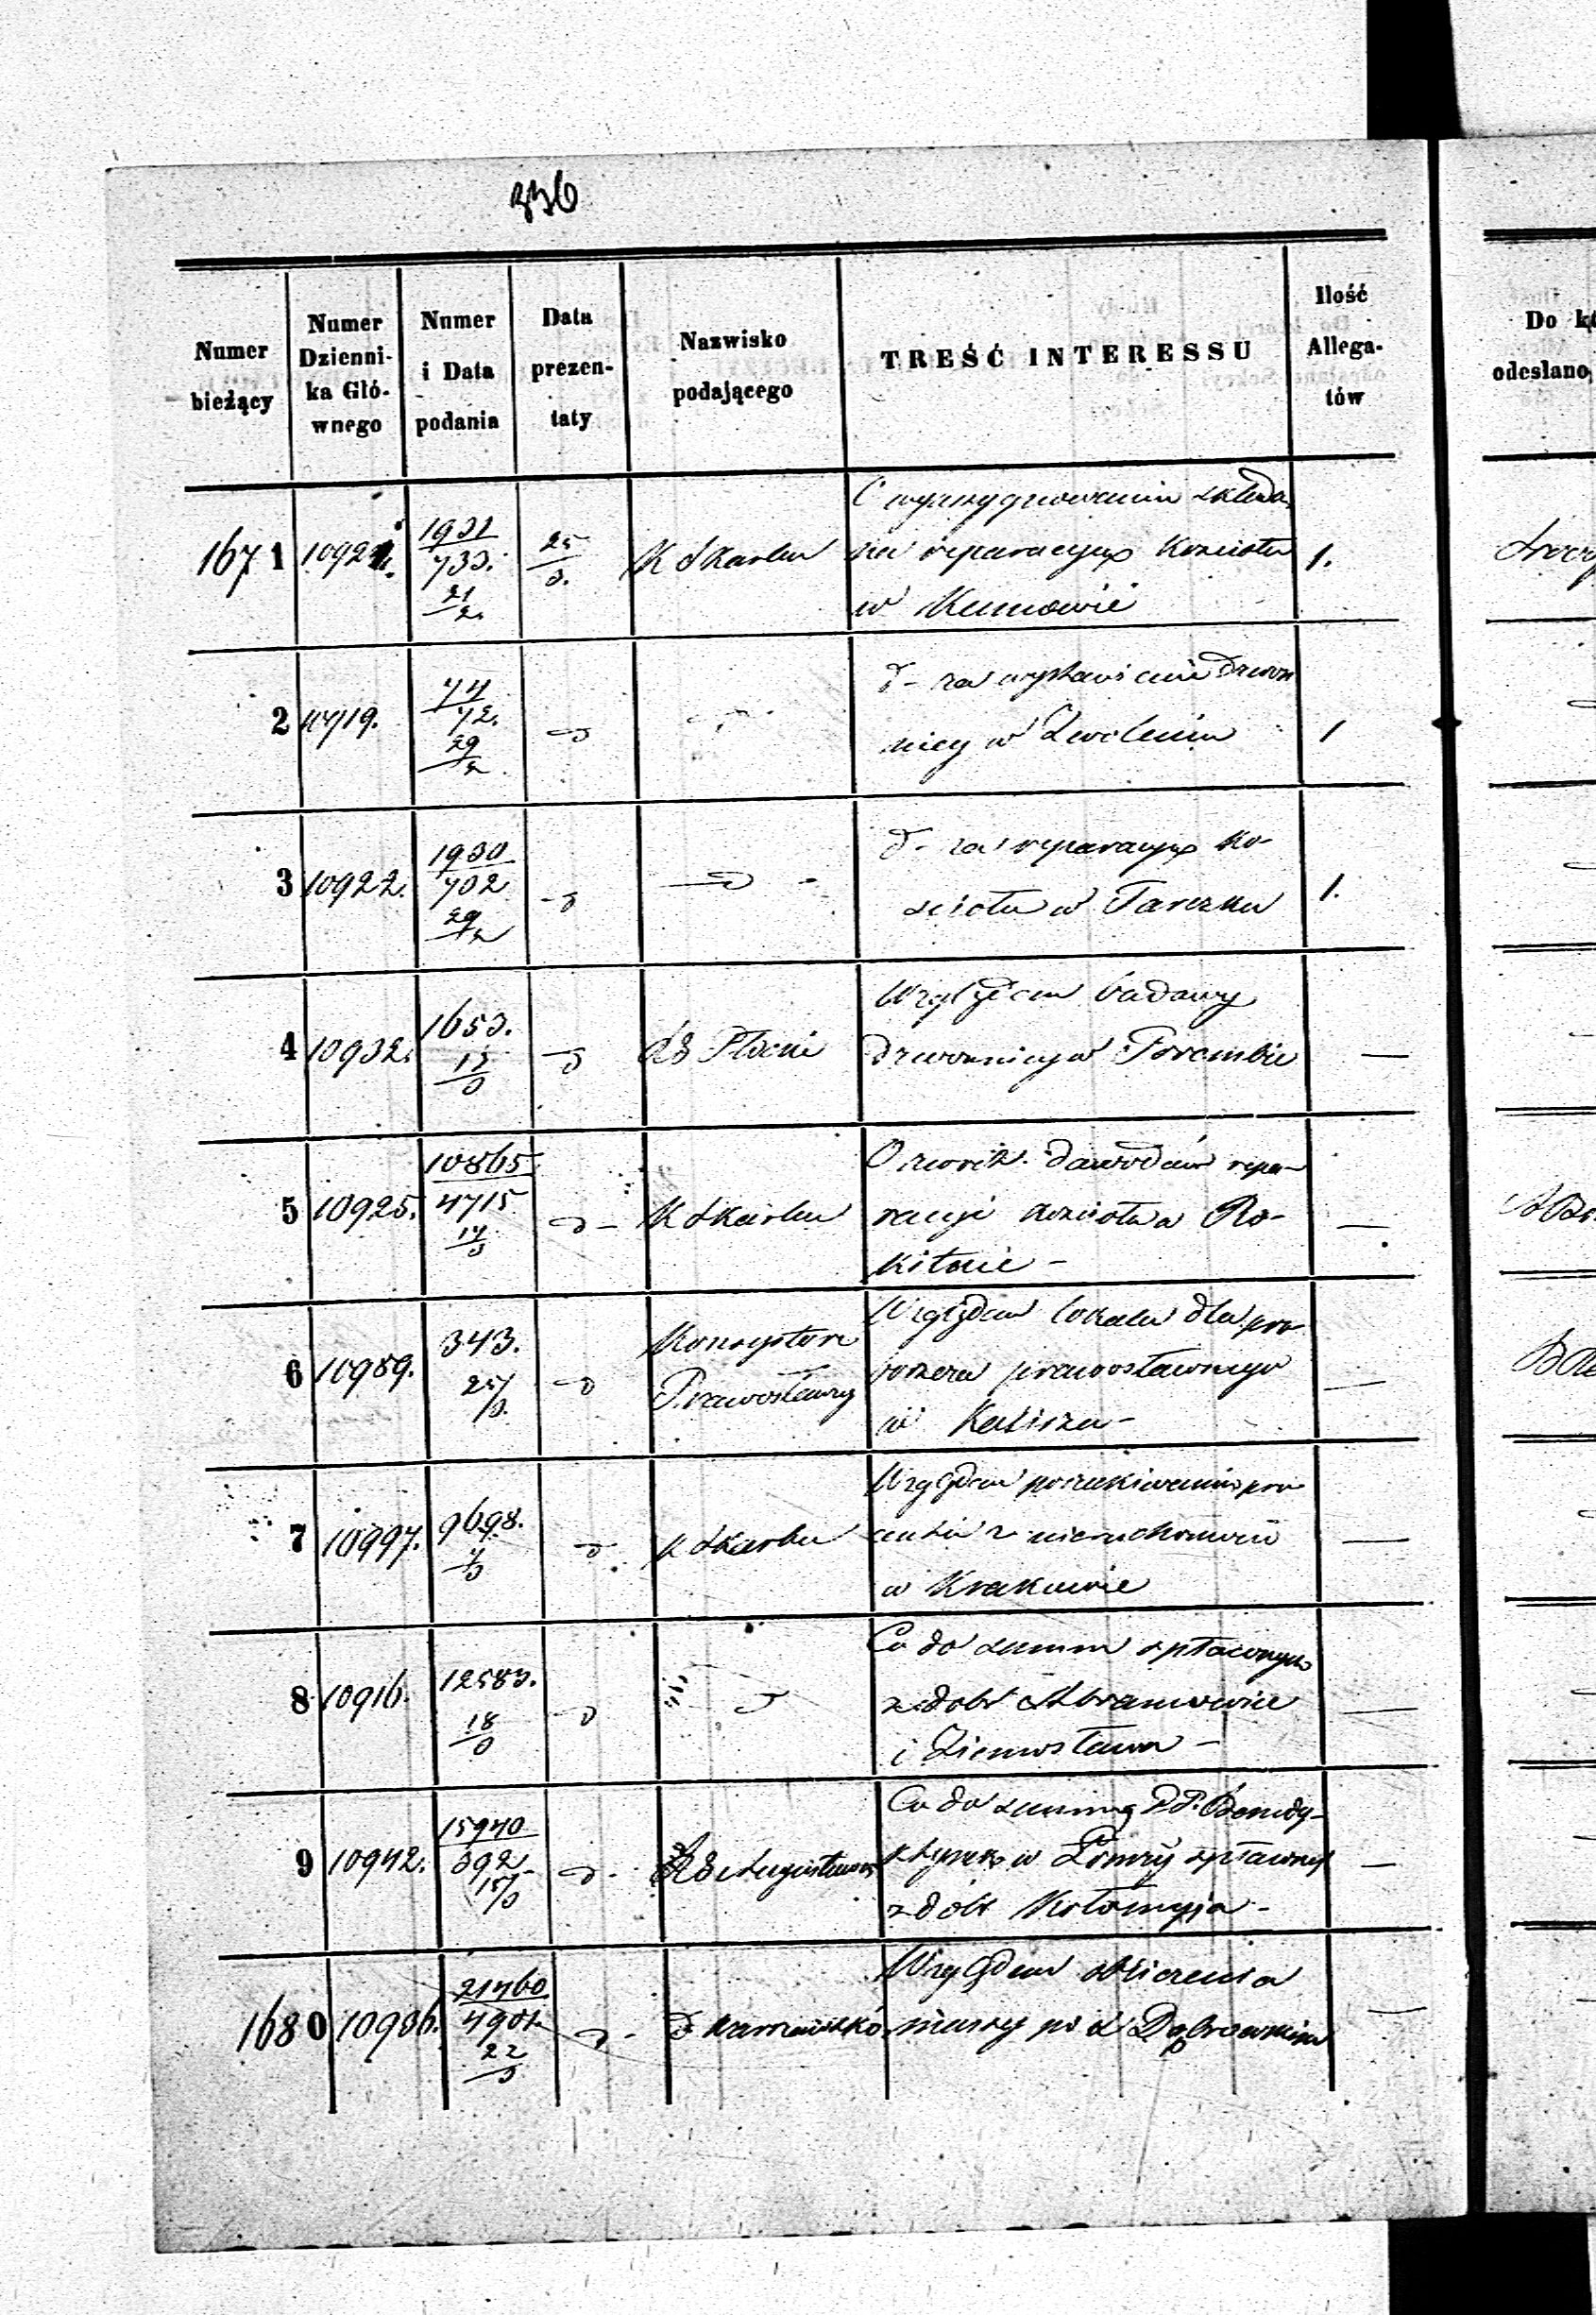 336
Numer bieżący | Numer Dzienni-ka Głó-wnego | Numer i Data podania | Data prezen-taty | Nazwisko podającego | TREŚĆ INTERESSU | Ilość Allega-tów
Do
odesłano
1671 | 10921. | 1931/733. 21/2. | 25/3. | K Skarbu | O wyasygnowaniu składa
na reparacyą Kościoła | 1.
w Kunowie
2 | 4719. | 74/72. 29/2. | d | d- za wystawienie Dzwon
nicy w Zwoleniu | 1
3 | 10922. | 1930/702 29/2 | d | d | d- za reparacyą Ko-
scioła w Tarczku | 1.
4 | 10932. | 1653. 13/3 | d | Płocki | Względem budowy
Dzwonnicy w Porembie | —
5 | 10925. | 10865/4715 17/3 | d - | K Skarbu | O zwrót. dowodów repa-
racyi kościoła w Ro- | —
kitnie -
6 | 10989. | 343. 25/3. | d | Konsystorz
Prawosławny | Względem lokalu dla pro
boszcza prawosławnego | —
w Kaliszu -
7 | 10997. | 9698. 7/3 | d | K Skarbu | Względem poszukiwania pro
centu z nieruchomości | —
w Krakowie
8 | 10916. | 12583. 18/3 | d | d | Co do summ spławnych
z dobr Abramowice | —
i Ziemosława -
9 | 10942. | 15940/392 15/3 | d - | Augustowski | Co do summy P.P. Benedy-
ktynek w Łomży spławnej | —
z dobr Kołomyja -
1680 | 10986. | 21460/4901. 22/3 | d - | d Warszawski | Względem obliczenia
massy po X Dąbrowskim | —